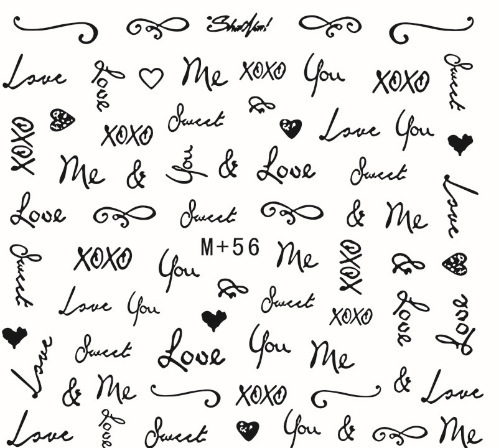 ShaoNan!
Love Love Me XOXO You XOXO Sweet
XOXO XOXO Sweet & Love You
Me & You & Love Sweet Love
Love Sweet & Me
Sweet XOXO You M+56 Me XOXO &
Love You & Sweet XOXO Love Love
Love Sweet Love You Me
& Me XOXO & Love
Love Love Sweet You & Me